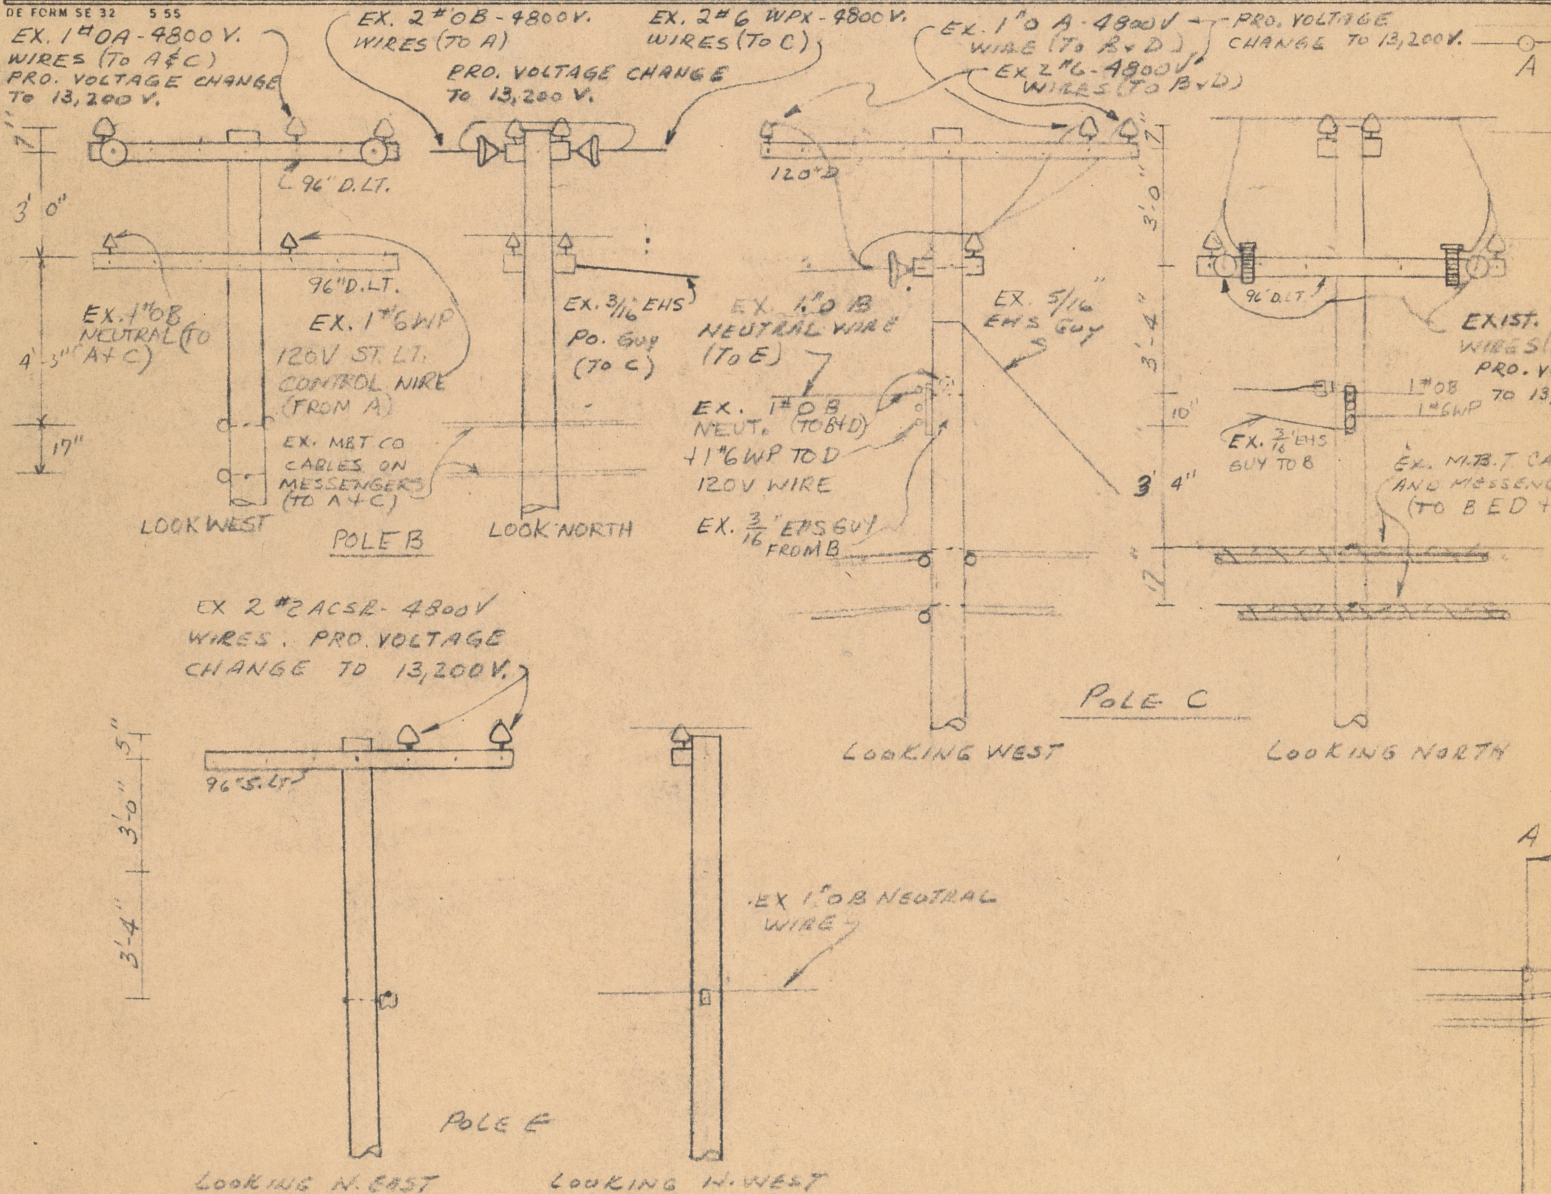 DE FORM SE 32 5 55
EX. 1#0A-4800V.
WIRES (TO A&C)
PRO. VOLTAGE CHANGE
TO 13,200 V.
EX. 2#0B-4800V.
WIRES (TO A)
EX. 2#6 WPX-4800V.
WIRES (TO C)
PRO. VOLTAGE CHANGE
TO 13,200 V.
EX. 1#0 A-4800V
WIRE (TO B & D)
EX 2#6-4800V
WIRES (TO B & D)
PRO. VOLTAGE
CHANGE TO 13,200V.
A
7"
3' 0"
4' 3"
17"
96" D.LT.
96" D.LT.
EX. 1#0B
NEUTRAL (TO
A+C)
EX. 1#6WP
120V ST. LT.
CONTROL WIRE
(FROM A)
EX. MBT CO
CABLES ON
MESSENGERS
(TO A+C)
LOOK WEST
POLE B
LOOK NORTH
EX. 3/16 EHS
PO. GUY
(TO C)
120" D
EX. 1#0 B
NEUTRAL WIRE
(TO E)
EX. 5/16"
EHS GUY
EX. 1#0B
NEUT. (TO B&D)
+1#6WP TO D
120V WIRE
EX. 3/16" EHS GUY
FROM B
7"
3'-0"
3'-4"
10"
3' 4"
17"
96" D.LT
EXIST.
WIRES (
PRO. V
TO 13,
1#0B
1#6WP
EX. 3/16" EHS
GUY TO B
EX. M.B.T. CA
AND MESSENG
(TO B E D +
POLE C
LOOKING WEST
LOOKING NORTH
EX 2#2 ACSR-4800V
WIRES. PRO. VOLTAGE
CHANGE TO 13,200V.
5"
3'-0"
3'-4"
96" S.LT
EX 1#0B NEUTRAL
WIRE
A
POLE E
LOOKING N. EAST
LOOKING N. WEST